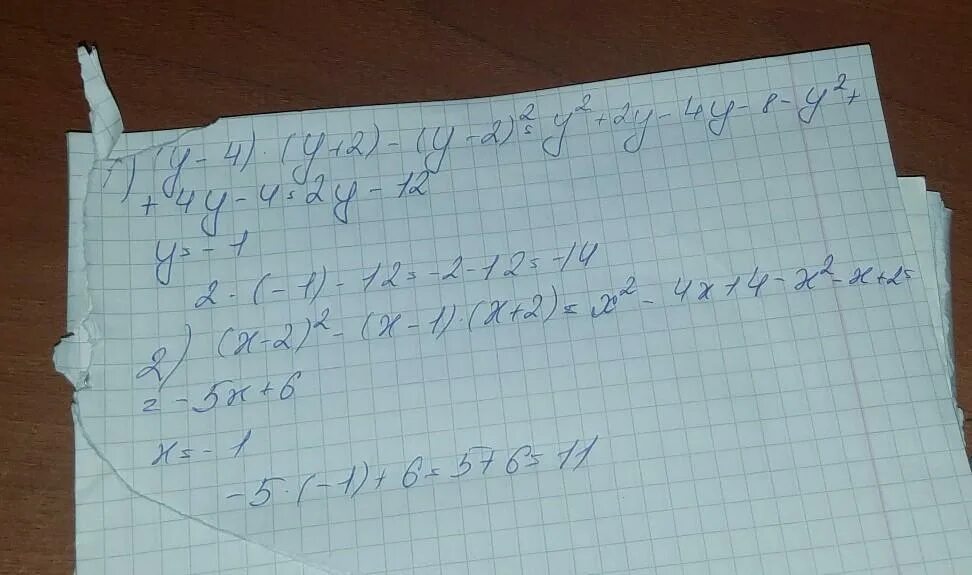 1) (y-4)·(y+2)-(y-2)²=y²+2y-4y-8-y²+
+4y-4=2y-12
y=-1
2·(-1)-12=-2-12=-14
2) (x-2)²-(x-1)·(x+2)=x²-4x+4-x²-x+2=
=-5x+6
x=-1
-5·(-1)+6=5+6=11